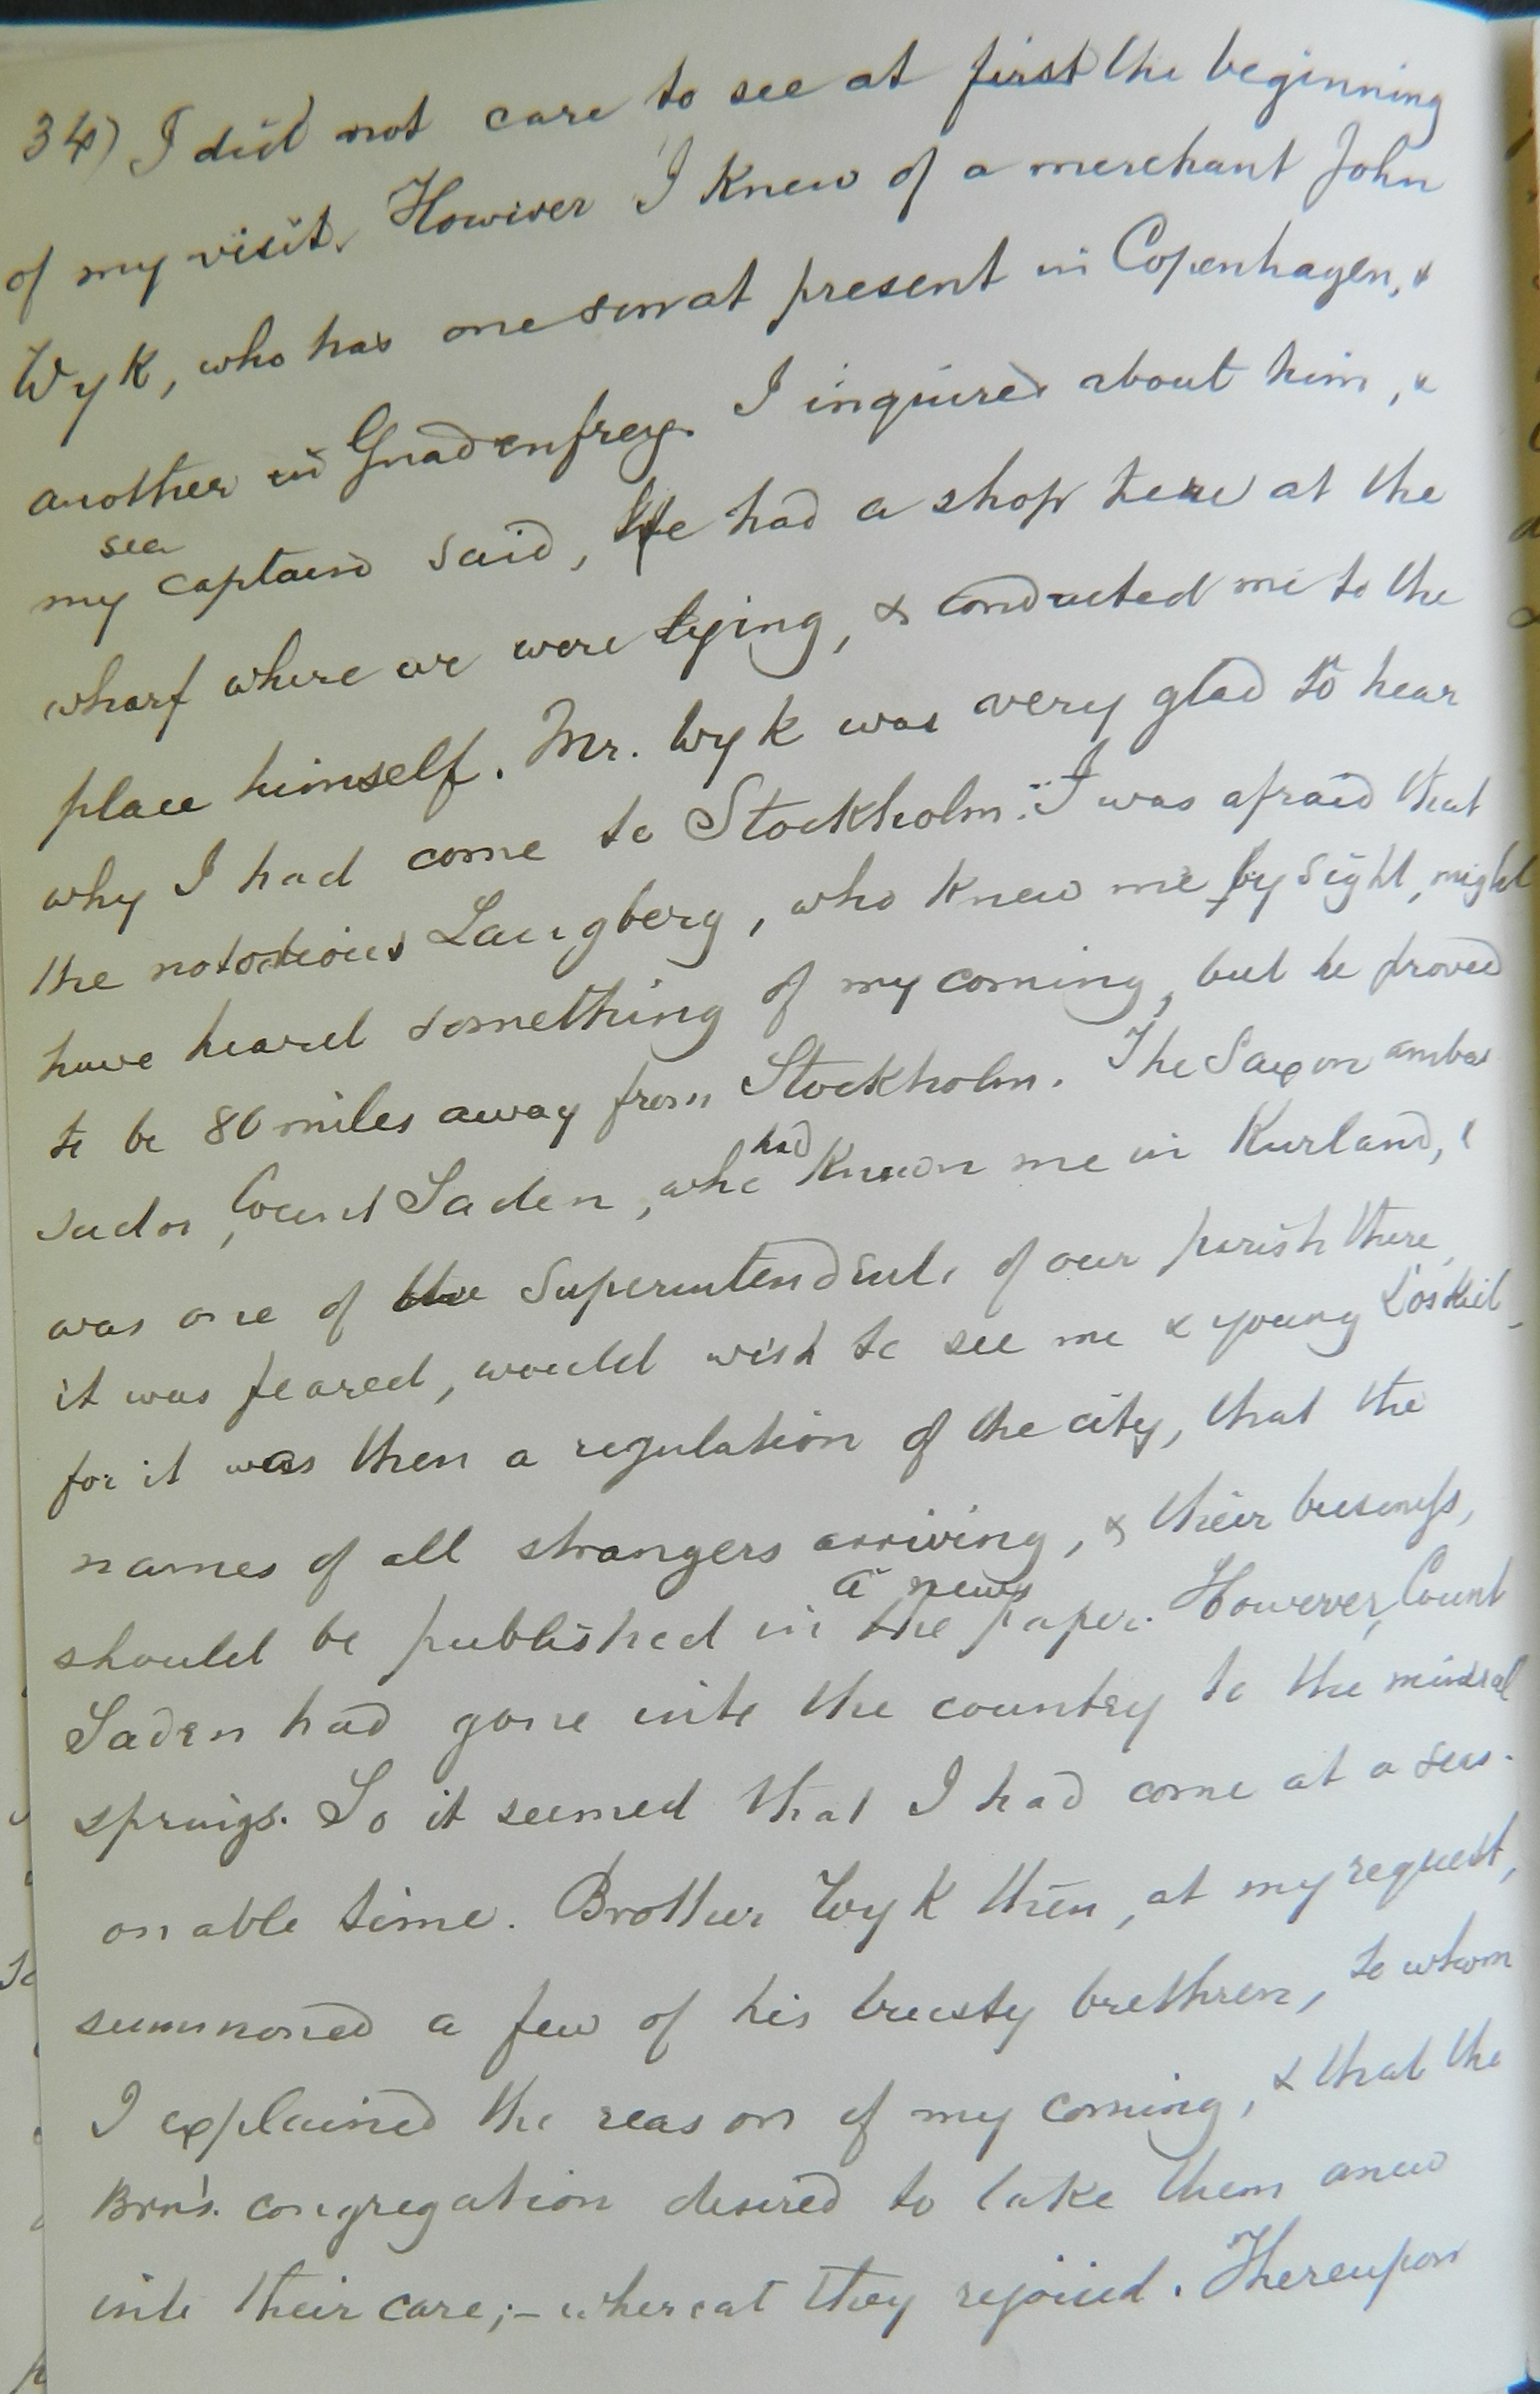 34) I did not care to see at first the beginning
of my visit. However I knew of a merchant John
Wyk, who has one son at present in Copenhagen, &
another in Gnadenfrey. I inquired about him, &
my sea captain said, He had a shop here at the
wharf where we were lying, & conducted me to the
place himself. Mr. Wyk was very glad to hear
why I had come to Stockholm. I was afraid that
the notorious Langberg, who knew me by sight, might
have heard something of my coming, but he proved
to be 80 miles away from Stockholm. The Saxon ambas
sador, Count Saden, who had known me in Kurland,
was one of the Superintendents of our parish there,
it was feared, would wish to see me & young Loskiel,
for it was then a regulation of the city, that the
names of all strangers arriving, & their business,
should be published in the a news paper. However, Count
Saden had gone into the country to the mineral
springs. So it seemed that I had come at a seas-
onable time. Brother Wyk then, at my request,
summoned a few of his trusty brethren, to whom
I explained the reason of my coming, & that the
Brn's. congregation desired to take them anew
into their care;– whereat they rejoiced. Thereupon